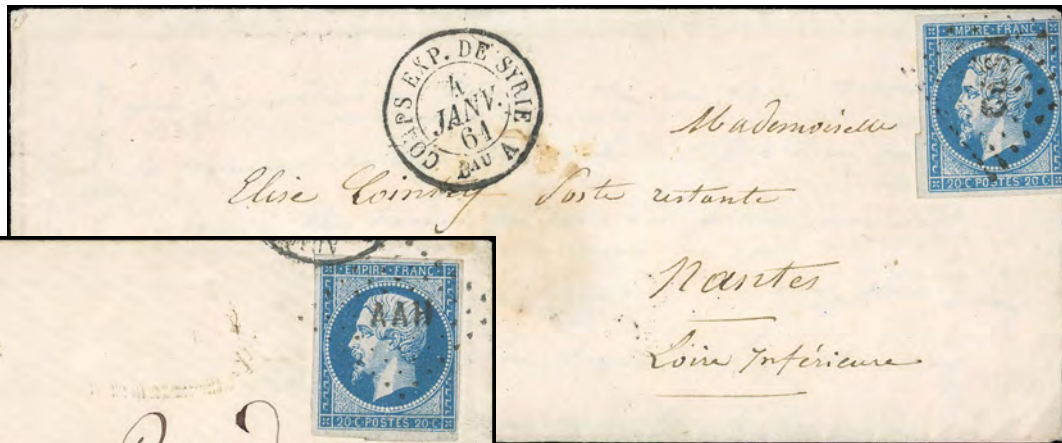 CORPS EXP. DE SYRIE
4
JANV.
61
BAU A
EMPIRE FRANC
20 C POSTES 20 C
Mademoiselle
Elise Poste restante
Nantes
Loire Inférieure
EMPIRE FRANC
AAH
20 C POSTES 20 C